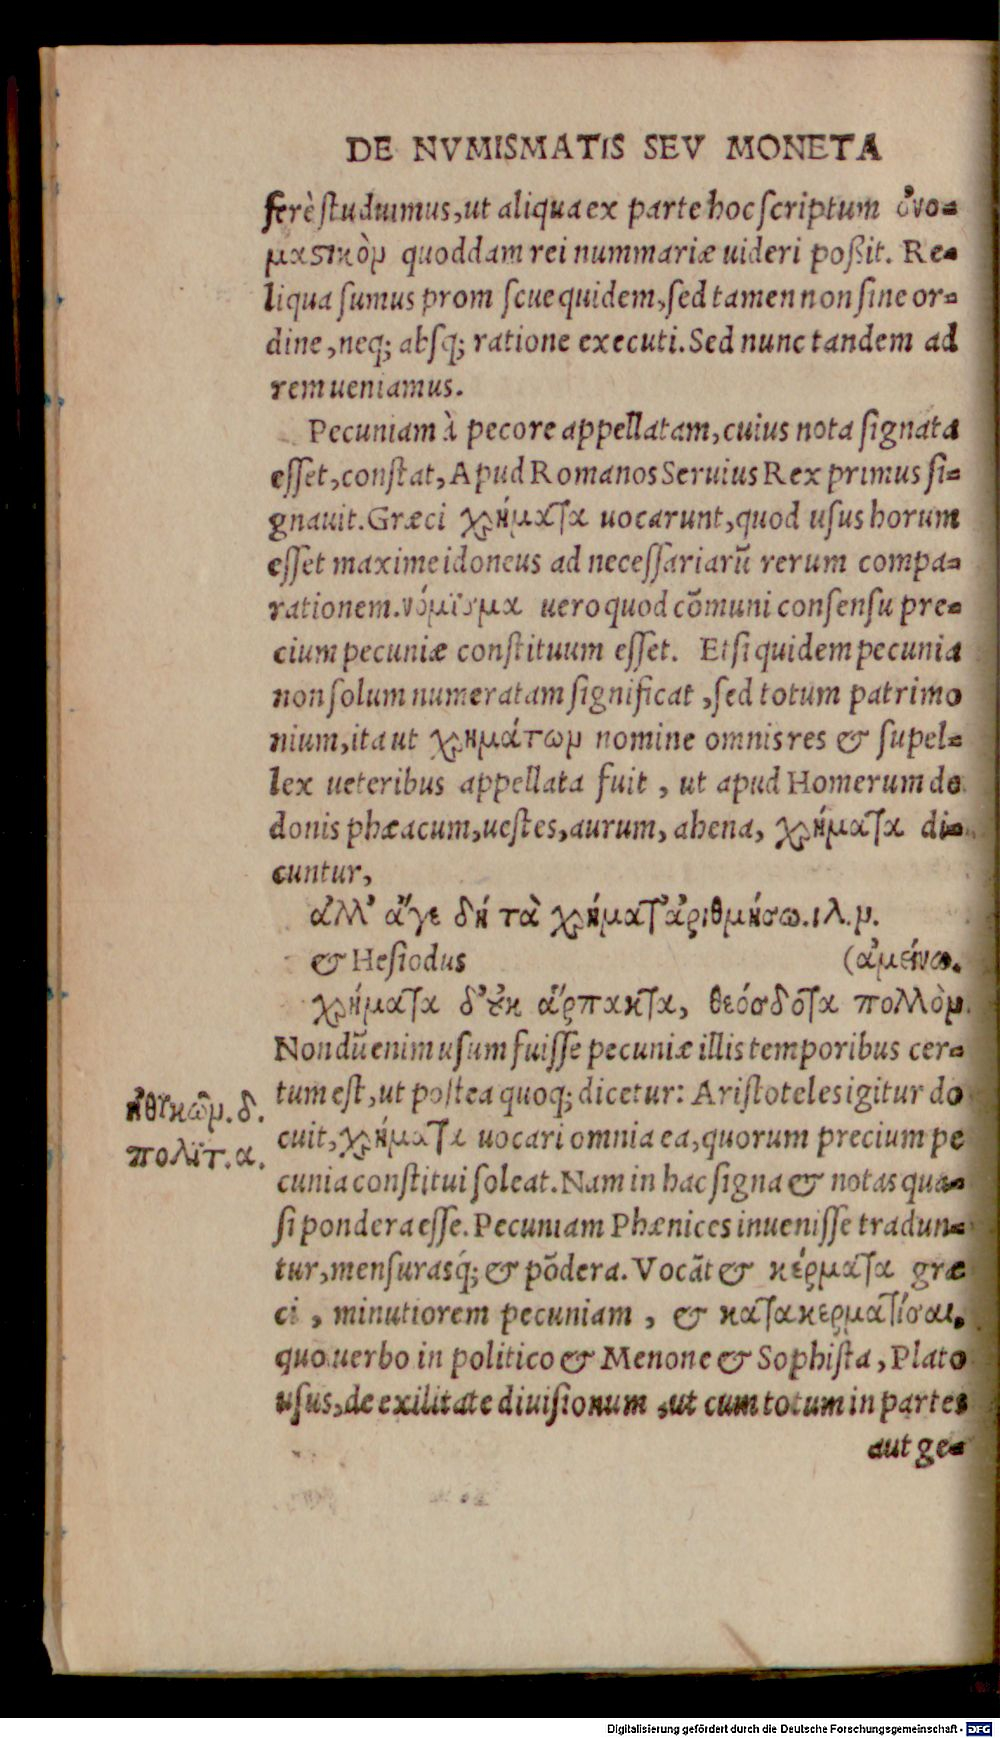 DE NVMISMATIS SEV MONETA
ferè ſtuduimus, ut aliqua ex parte hoc ſcriptum ὀνο-
μαστικὸν quoddam rei nummariæ uideri poßit. Re-
liqua ſumus prom ſcue quidem, ſed tamen non ſine or-
dine, neq; abſq; ratione executi. Sed nunc tandem ad
rem ueniamus.
Pecuniam à pecore appellatam, cuius nota ſignata
eſſet, conſtat, Apud Romanos Seruius Rex primus ſi-
gnauit. Græci χρήματα uocarunt, quod uſus horum
eſſet maxime idoneus ad neceſſariarũ rerum compa-
rationem. νόμϊσμα uero quod cõmuni conſenſu pre-
cium pecuniæ conſtituum eſſet. Etſi quidem pecunia
non ſolum numeratam ſignificat, ſed totum patrimo
nium, ita ut χρημάτων nomine omnis res & ſupel-
lex ueteribus appellata fuit, ut apud Homerum de
donis phæacum, ueſtes, aurum, ahena, χρήματα di-
cuntur,
ἀλλ' ἄγε δή τὰ χρήματ' ἀριθμήσω. ιλ. ν.
& Heſiodus (ἀμείνω.
χρήματα δ' ἐκ ἅρπακτα, θεόσδοτα πολλὸν.
Nondũ enim uſum fuiſſe pecuniæ illis temporibus cer-
tum eſt, ut poſtea quoq; dicetur: Ariſtoteles igitur do
ἠθικῶν. δ.
πολϊτ. α.
cuit, χρήματα uocari omnia ea, quorum precium pe
cunia conſtitui ſoleat. Nam in hac ſigna & notas qua-
ſi pondera eſſe. Pecuniam Phænices inueniſſe tradun-
tur, menſurasq́; & põdera. Vocãt & κέρματα græ
ci, minutiorem pecuniam, & κατακερματίσαι,
quo uerbo in politico & Menone & Sophiſta, Plato
uſus, de exilitate diuiſionum, ut cum totum in partes
aut ge-
Digitalisierung gefördert durch die Deutsche Forschungsgemeinschaft - DFG